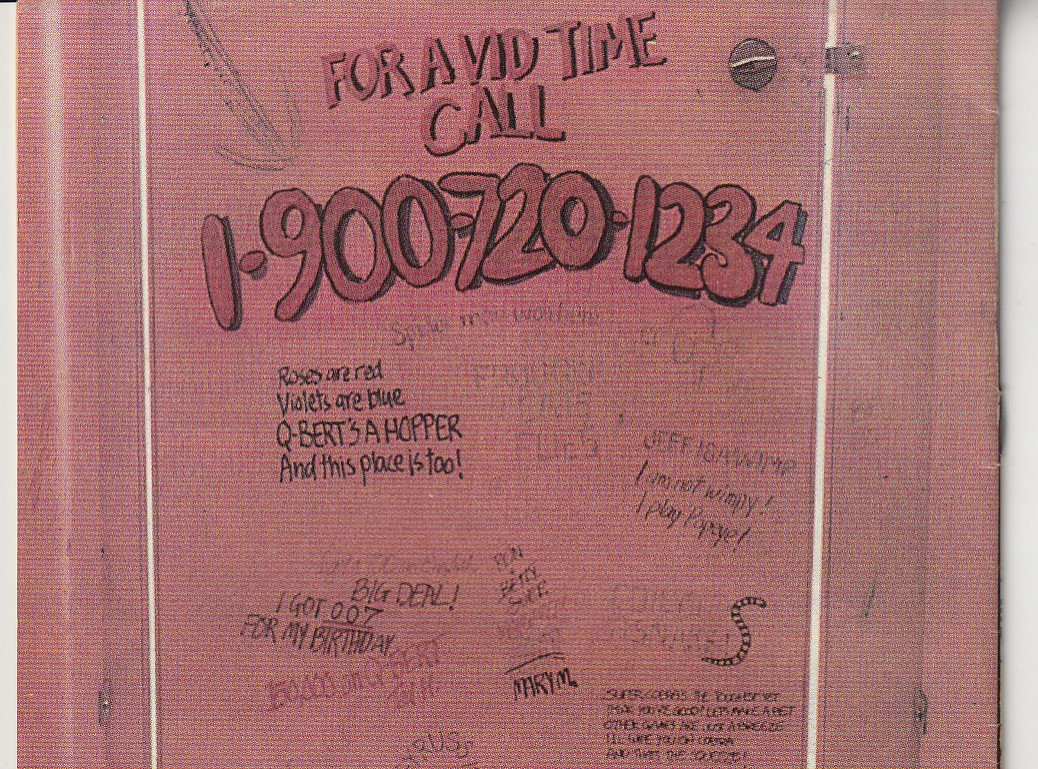 FOR A VID TIME
CALL
1-900-720-1234
Spider man
Roses are red
Violets are blue
Q-BERT'S A HOPPER
And this place is too!
JEFF IS A WIMP
I am not wimpy!
I play Popeye!
BIG DEAL!
I GOT 007
FOR MY BIRTHDAY
RON
BETTY
SUE
150,000 on Q-BERT
MARY M.
SUPER COBRA'S THE TOUGHEST YET
THINK YOU'RE GOOD? LET'S MAKE A BET
OTHER GAMES ARE JUST A BREEZE
I'LL WIPE YOU ON COBRA
AND THAT'S THE SQUEEZE!